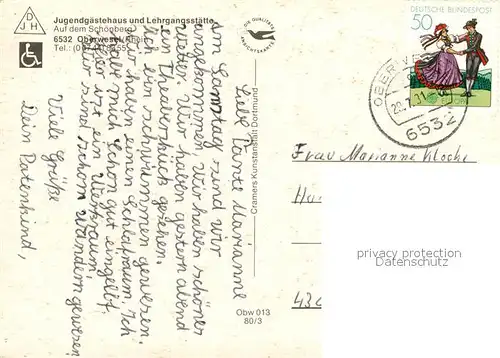 D
J H
Jugendgästehaus und Lehrgangsstätte
Auf dem Schönberg
6532 Oberwesel/Rhein
DIE QUALITÄTS
ANSICHTSKARTE
DEUTSCHE BUNDESPOST
50
EUROPA
6532
Liebe Tante Marianne
Am Samstag sind wir
angekommen. Wir haben schönes
Wetter. Wir haben gestern abend
ein Theaterstück gesehen.
Ich bin schwimmen gewesen.
Wir haben einen Schlafraum. Ich
habe mich schon gut eingelebt.
Hier ist ein Werkraum.
Wir sind schon wandern gewesen.
Viele Grüße
Dein Patenkind,
Cramers Kunstanstalt Dortmund
Obw 013
80/3
Frau Marianne
privacy protection
Datenschutz